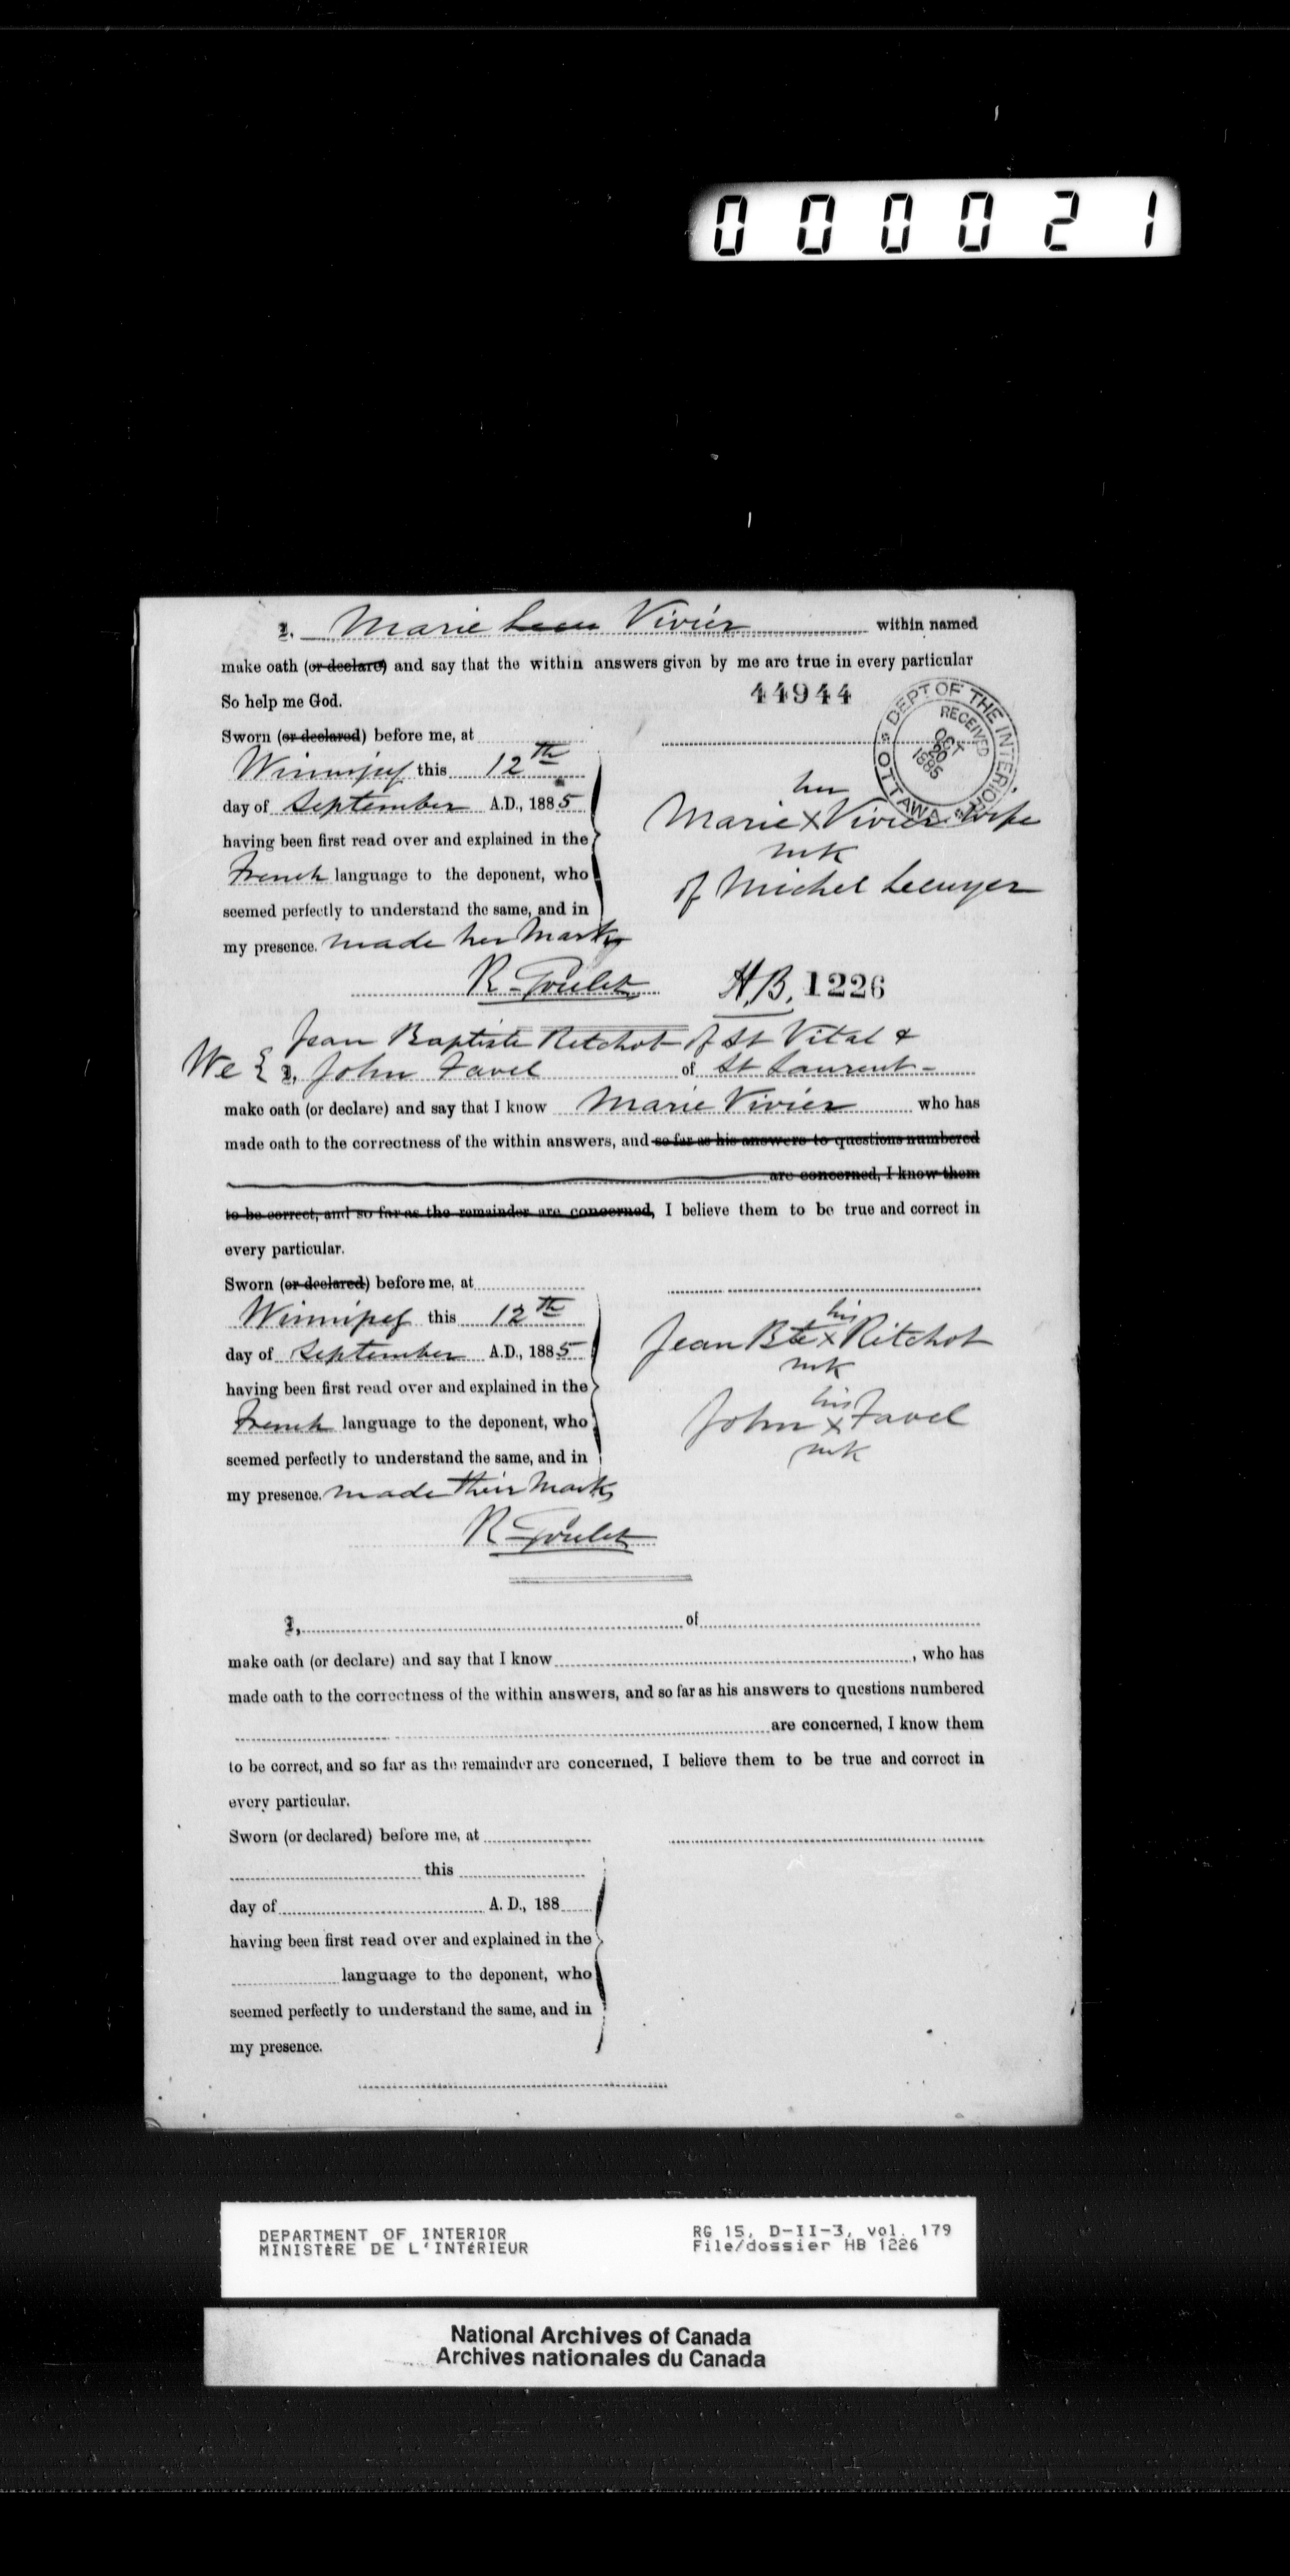 000021
I, Marie Vivier within named
make oath (or declare) and say that the within answers given by me are true in every particular
So help me God.
44944
DEPT OF THE INTERIOR OTTAWA
RECEIVED
OCT
20
1885
Sworn (or declared) before me, at
Winnipeg this 12th
day of September A.D., 1885
having been first read over and explained in the
French language to the deponent, who
seemed perfectly to understand the same, and in
my presence. made her mark
her
Marie x Vivier wife
mk
of Michel Lecuyer
R. Goulet
H.B. 1226
Jean Baptiste Ritchot of St Vital &
We { I, John Favel of St Laurent -
make oath (or declare) and say that I know Marie Vivier who has
made oath to the correctness of the within answers, and so far as his answers to questions numbered
are concerned, I know them
to be correct, and so far as the remainder are concerned, I believe them to be true and correct in
every particular.
Sworn (or declared) before me, at
Winnipeg this 12th
day of September A.D., 1885
having been first read over and explained in the
French language to the deponent, who
seemed perfectly to understand the same, and in
my presence. made their marks
his
Jean Bte x Ritchot
mk
his
John x Favel
mk
R. Goulet
I, of
make oath (or declare) and say that I know , who has
made oath to the correctness of the within answers, and so far as his answers to questions numbered
are concerned, I know them
to be correct, and so far as the remainder are concerned, I believe them to be true and correct in
every particular.
Sworn (or declared) before me, at
this
day of A. D., 188
having been first read over and explained in the
language to the deponent, who
seemed perfectly to understand the same, and in
my presence.
DEPARTMENT OF INTERIOR
MINISTÈRE DE L'INTÉRIEUR
RG 15, D-II-3, vol. 179
File/dossier HB 1226
National Archives of Canada
Archives nationales du Canada